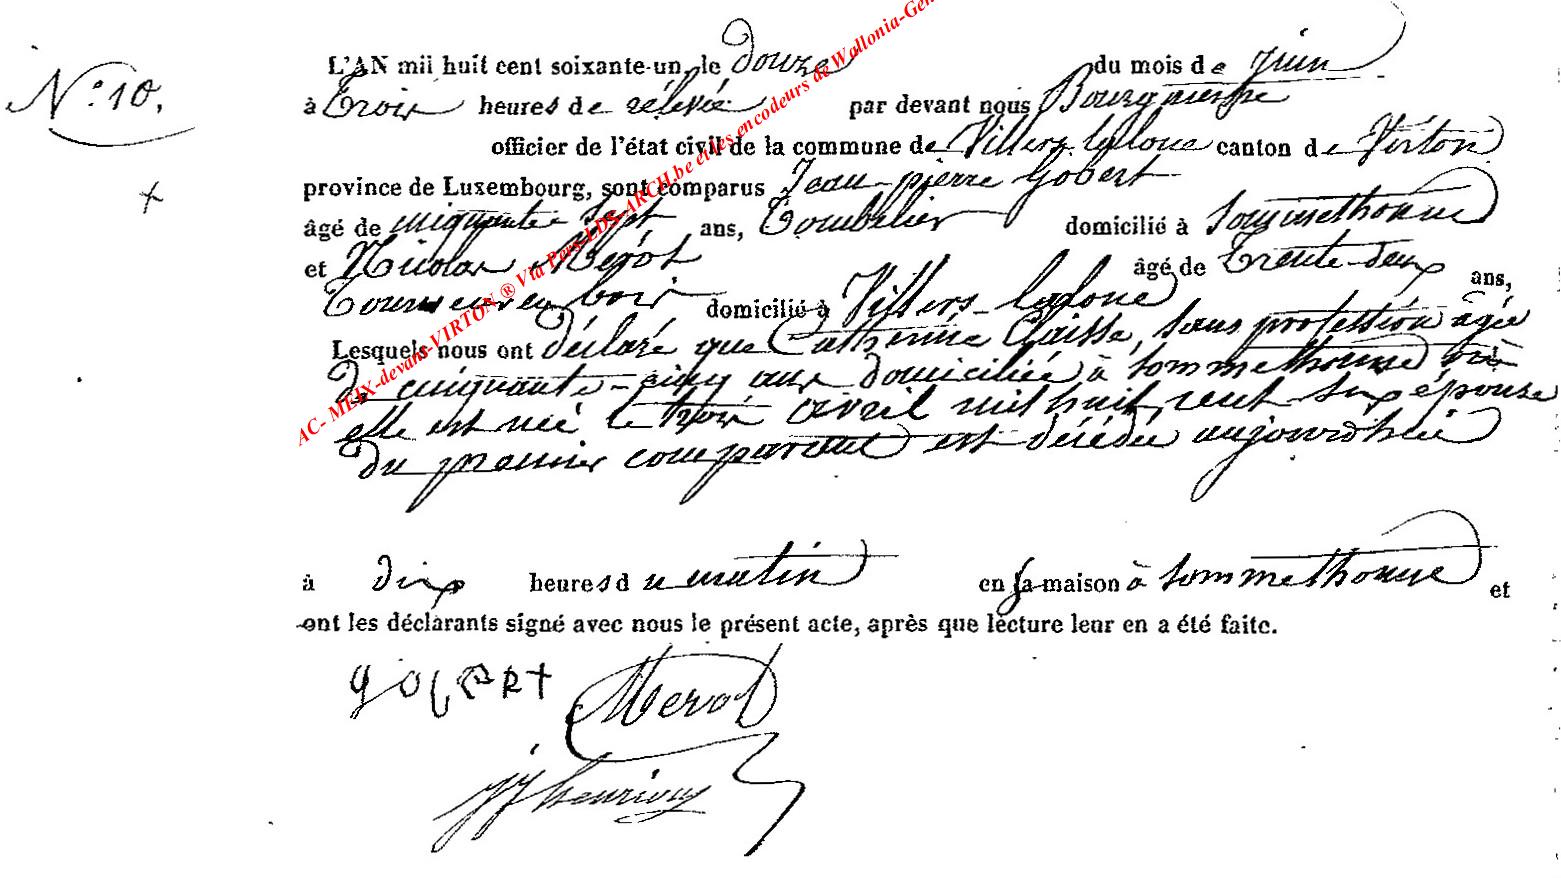 N.° 10.
L'AN mil huit cent soixante-un le douze du mois de juin
à trois heures de rélevée par devant nous Bourgmestre
officier de l'état civil de la commune de Villers-laloue canton de Virton
province de Luxembourg, sont comparus Jean-pierre Gobert
âgé de cinquante sept ans, Tombelier domicilié à Sommethonne
et Nicolas Mérot âgé de trente-deux ans,
Tourneur en bois domicilié à Villers-laloue
Lesquels nous ont déclaré que Catherine Claisse, sans profession âgée
de cinquante-cinq ans domiciliée à Sommethonne où
elle est née le trois avril mil huit cent six épouse
du premier comparant est décédée aujourd'hui
à dix heures du matin en sa maison à Sommethonne et
ont les déclarants signé avec nous le présent acte, après que lecture leur en a été faite.
goBERt Merot
JJ henrion
AC- MEIX-devant-VIRTON ® Via Pers-LDS-ARCH.be et les encodeurs de Wallonia-Gen